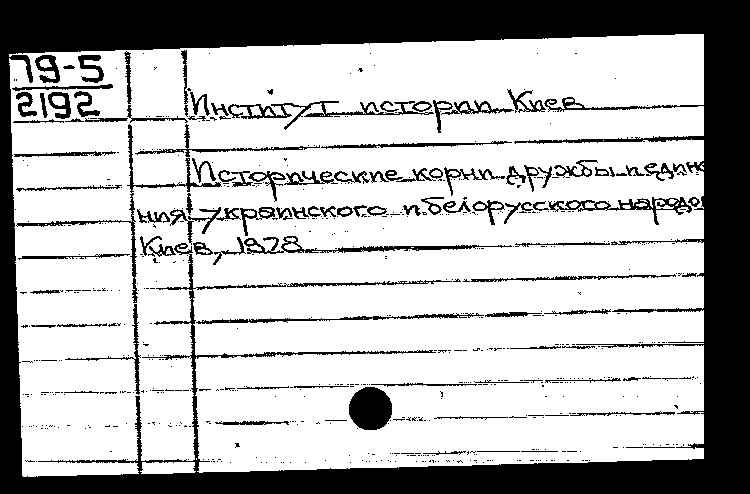 79-5
2192
Институт истории Киев
Исторические корни дружбы и едине
ния украинского и белорусского народо
Киев, 1978